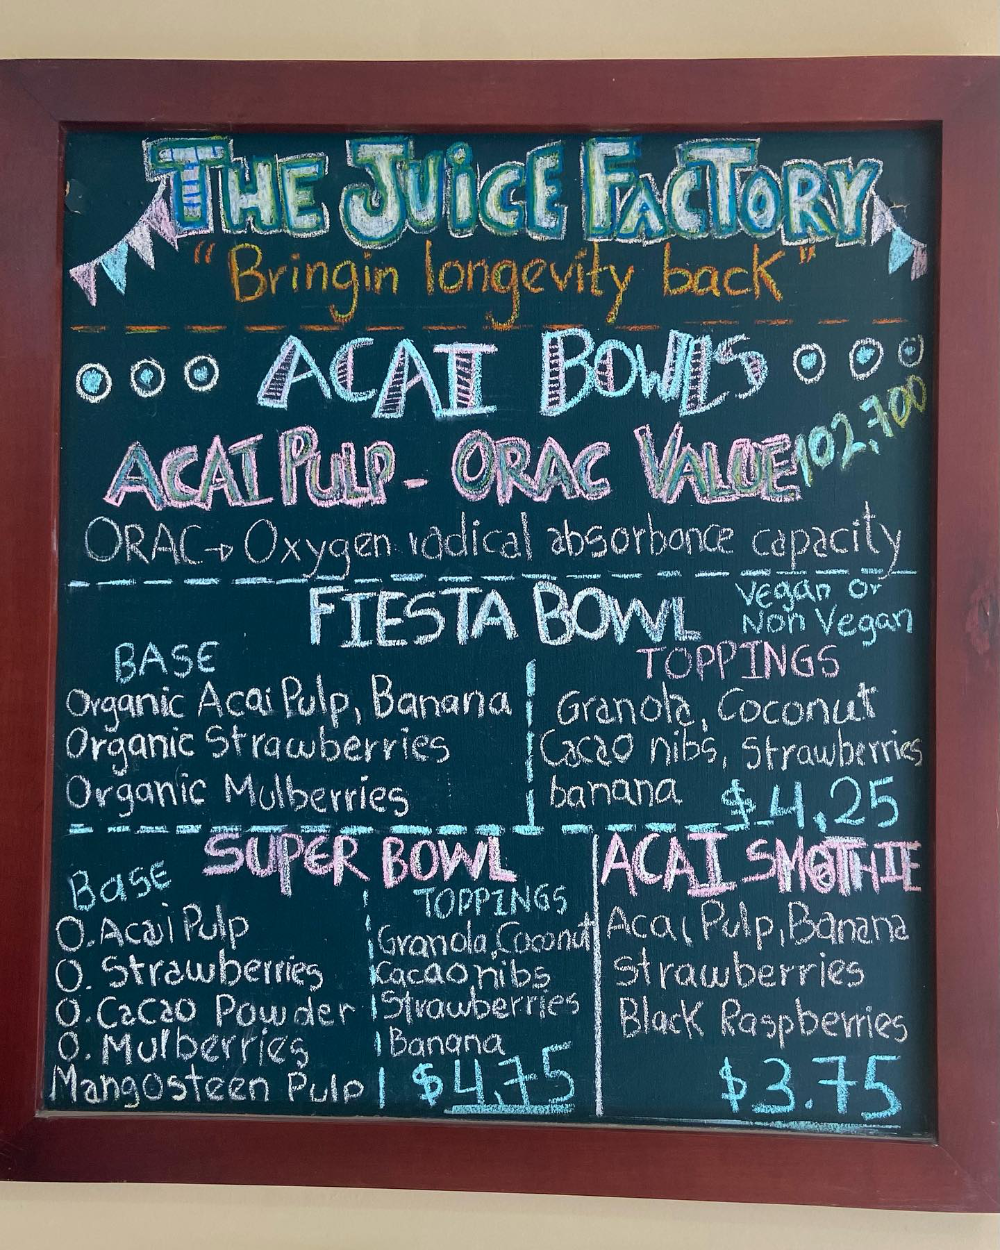 THE JUiCE FACTORY
"Bringin longevity back"
ACAI BOWLS
ACAI PULP - ORAC VALUE 102,700
ORAC → Oxygen radical absorbance capacity
FIESTA BOWL
Vegan or
Non Vegan
BASE
Organic Acai Pulp, Banana
Organic Strawberries
Organic Mulberries
TOPPINGS
Granola, Coconut
Cacao nibs, Strawberries
banana
$4,25
SUPER BOWL
Base
O. Acai Pulp
O. Strawberries
O. Cacao Powder
O. Mulberries
Mangosteen Pulp
TOPPINGS
Granola, Coconut
Cacao nibs
Strawberries
Banana
$4,75
ACAI SMOTHIE
Acai Pulp, Banana
strawberries
Black Raspberries
$3.75